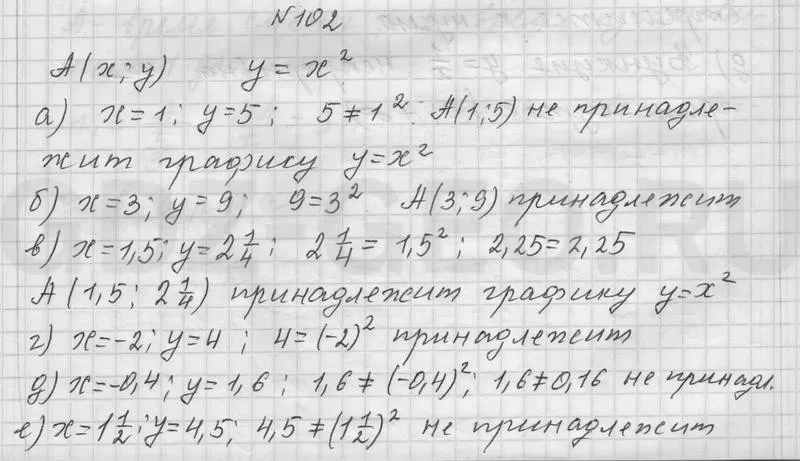 №102
A(x; y) y = x²
а) x=1; y=5; 5≠1² A(1;5) не принадле-
жит графику y=x²
б) x=3; y=9; 9=3² A(3;9) принадлежит
в) x=1,5; y=2 1/4; 2 1/4 = 1,5²; 2,25=2,25
A(1,5; 2 1/4) принадлежит графику y=x²
г) x=-2; y=4; 4=(-2)² принадлежит
д) x=-0,4; y=1,6; 1,6≠(-0,4)²; 1,6≠0,16 не принадл.
е) x=1 1/2; y=4,5; 4,5≠(1 1/2)² не принадлежит